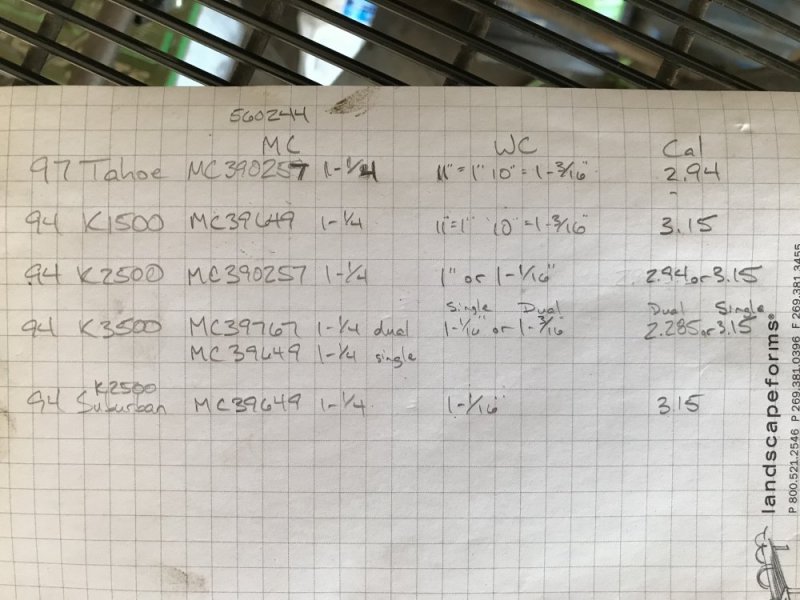 560244
MC WC Cal
97 Tahoe MC390257 1-1/4 11"=1" 10"=1-3/16" 2.94
94 K1500 MC39649 1-1/4 11"=1" 10"=1-3/16" 3.15
94 K2500 MC390257 1-1/4 1" or 1-1/16" 2.94 or 3.15
Single Dual Dual Single
94 K3500 MC39767 1-1/4 dual 1-1/16" or 1-3/16" 2.285 or 3.15
MC39649 1-1/4 single
K2500
94 Suburban MC39649 1-1/4 1-1/16" 3.15
landscapeforms®
P 800.521.2546 P 269.381.0396 F 269.381.3455